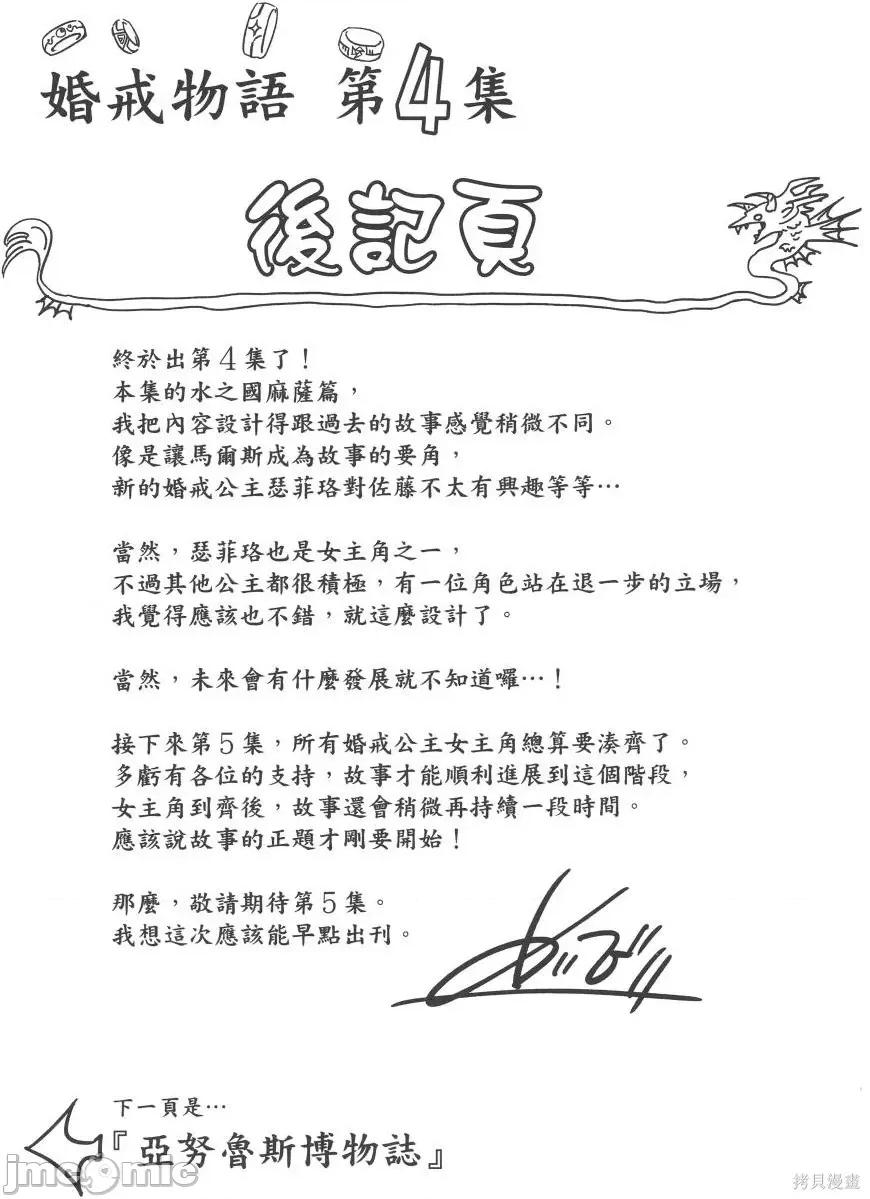 婚戒物語 第4集
後記頁
終於出第4集了！
本集的水之國麻薩篇，
我把內容設計得跟過去的故事感覺稍微不同。
像是讓馬爾斯成為故事的要角，
新的婚戒公主瑟菲珞對佐藤不太有興趣等等…
當然，瑟菲珞也是女主角之一，
不過其他公主都很積極，有一位角色站在退一步的立場，
我覺得應該也不錯，就這麼設計了。
當然，未來會有什麼發展就不知道囉…！
接下來第5集，所有婚戒公主女主角總算要湊齊了。
多虧有各位的支持，故事才能順利進展到這個階段，
女主角到齊後，故事還會稍微再持續一段時間。
應該說故事的正題才剛要開始！
那麼，敬請期待第5集。
我想這次應該能早點出刊。
下一頁是…
『亞努魯斯博物誌』
jmcomic
拷貝漫畫